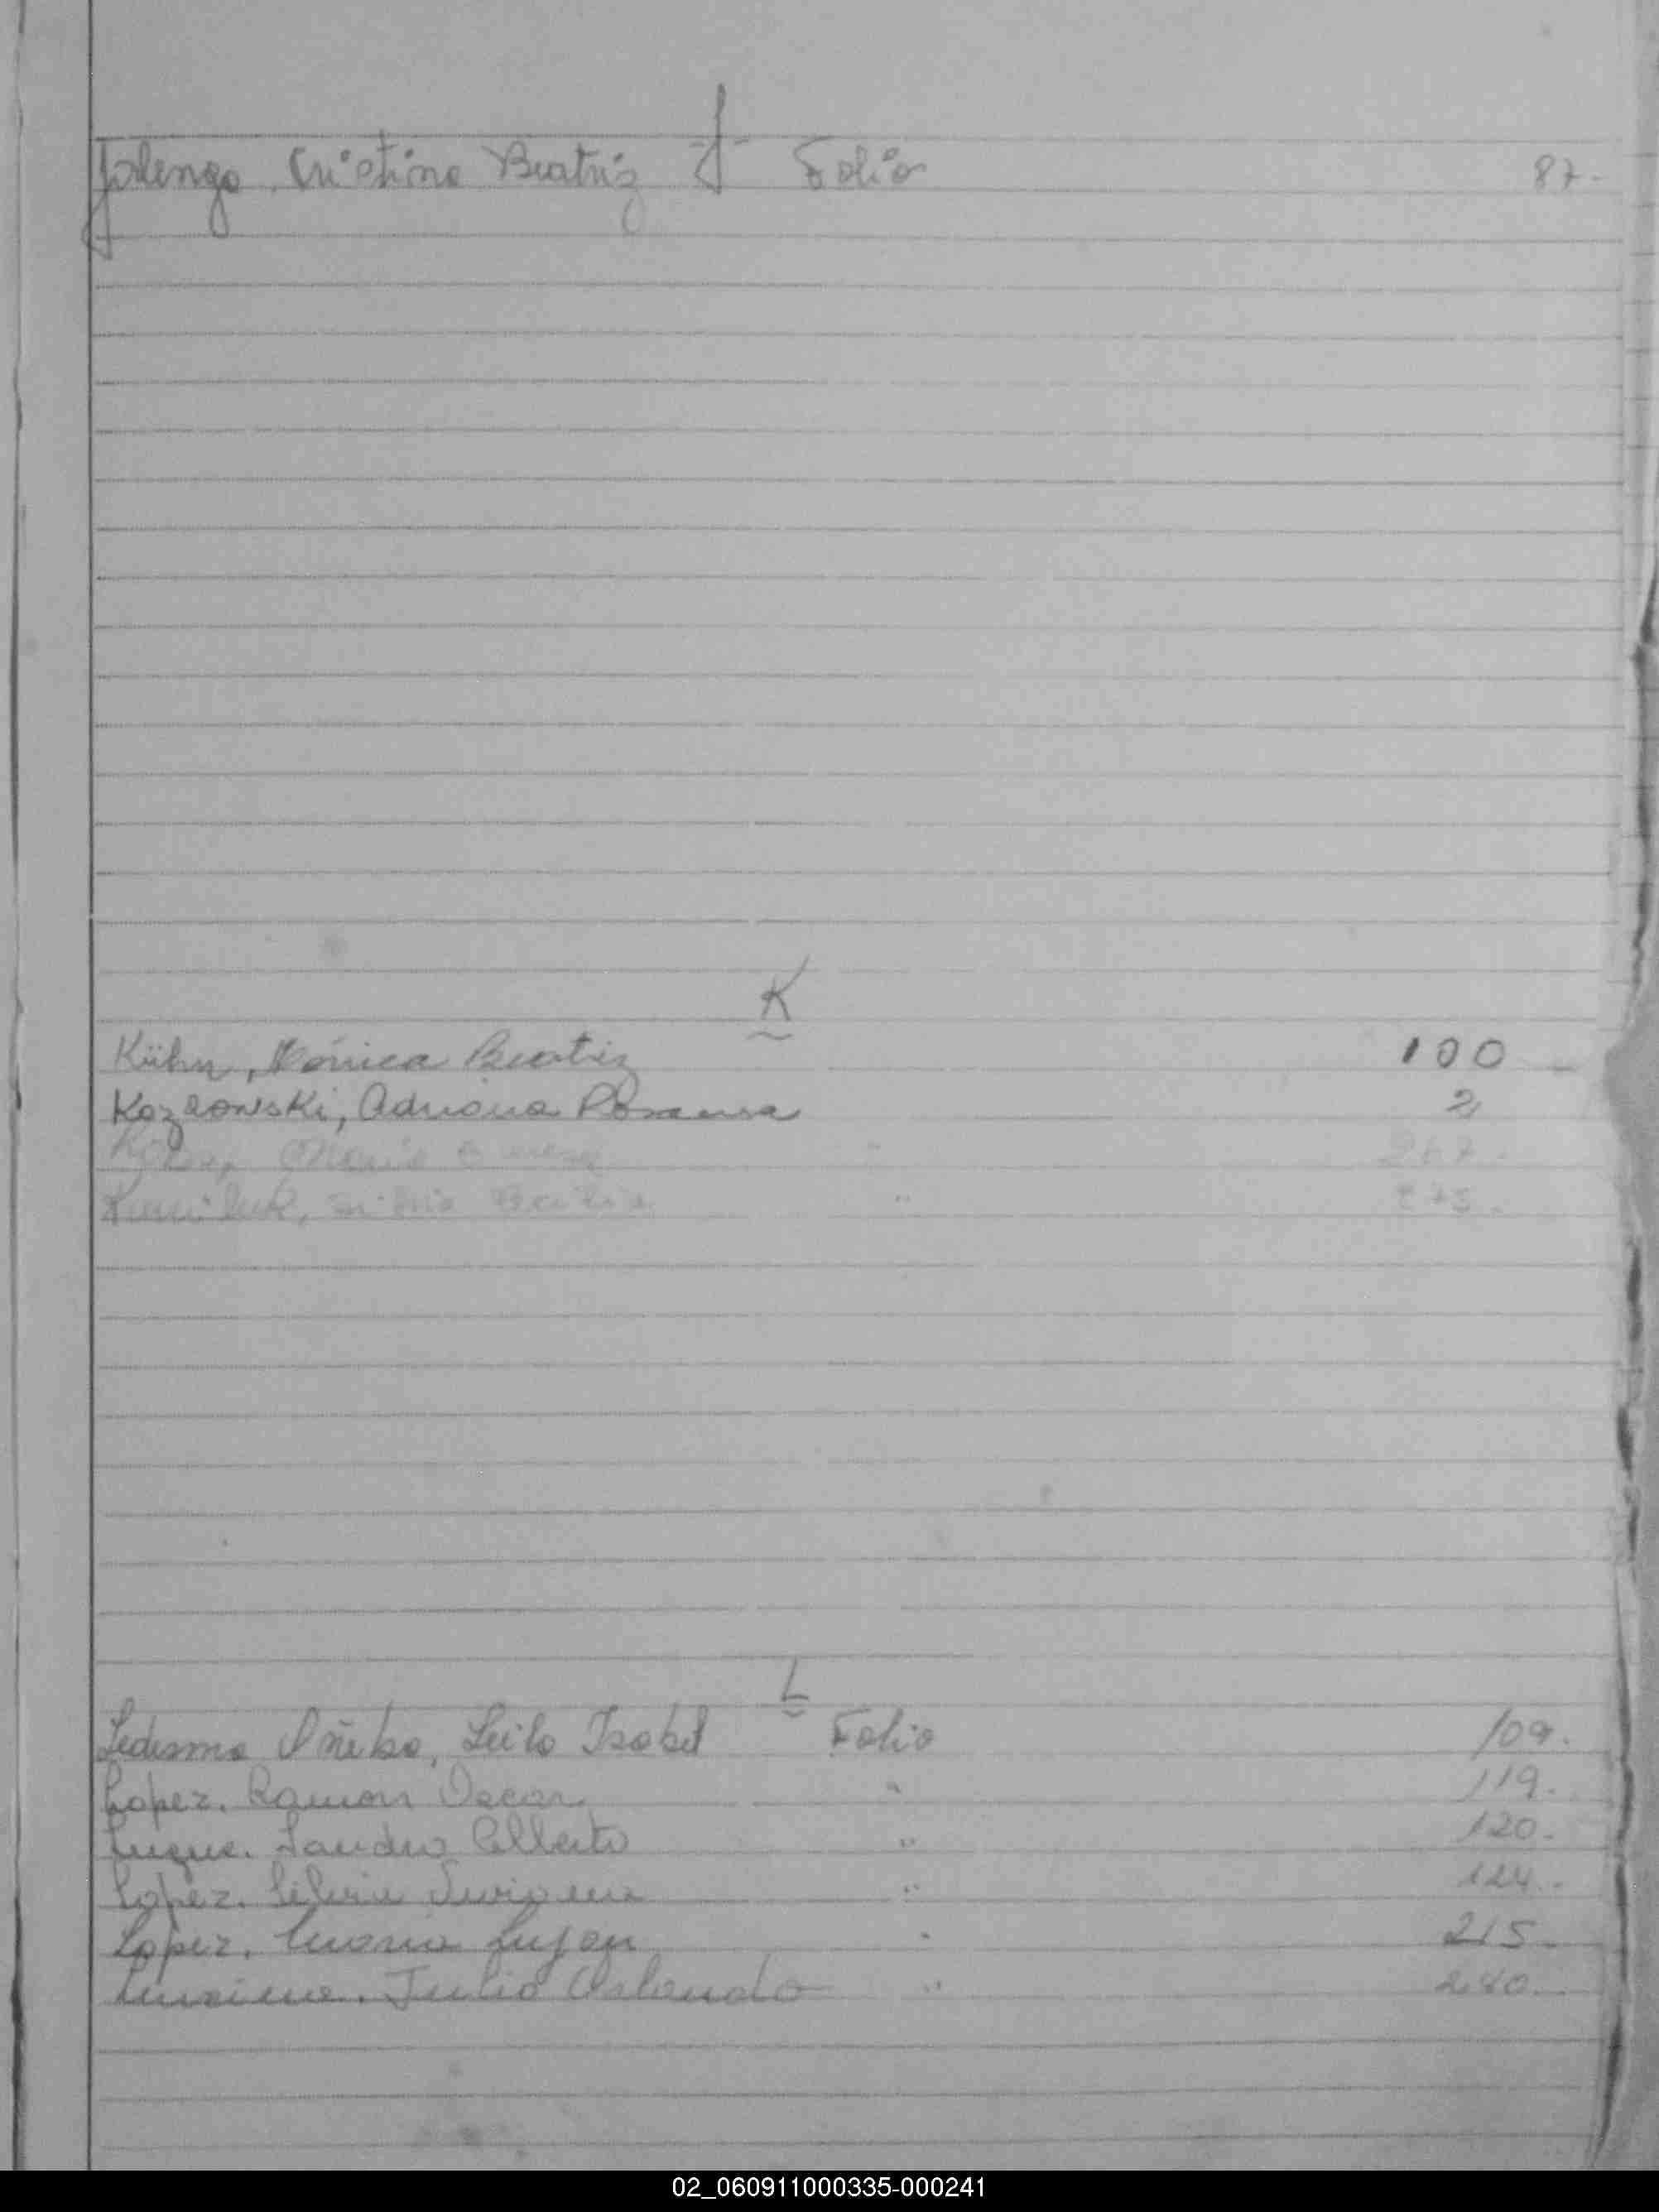 J
Jolengo, Cristina Beatriz Folio 87.-
K
Kühn, Mónica Beatriz 100
Kozlowski, Adriana Roxana 2
María 267.-
Silvia 275.-
L
Ledesma Leila Isabel Folio 109.-
Lopez. Ramon Oscar " 119.-
Luque. Sandro Alberto " 120.-
Lopez. Silvia " 124.-
Lopez. Maria Lujan " 215.-
Julio Orlando " 240.-
02_060911000335-000241